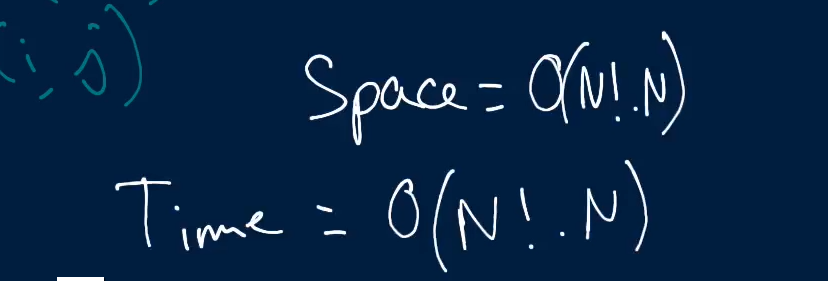 (i, j)
Space = O(N!.N)
Time = O(N!.N)